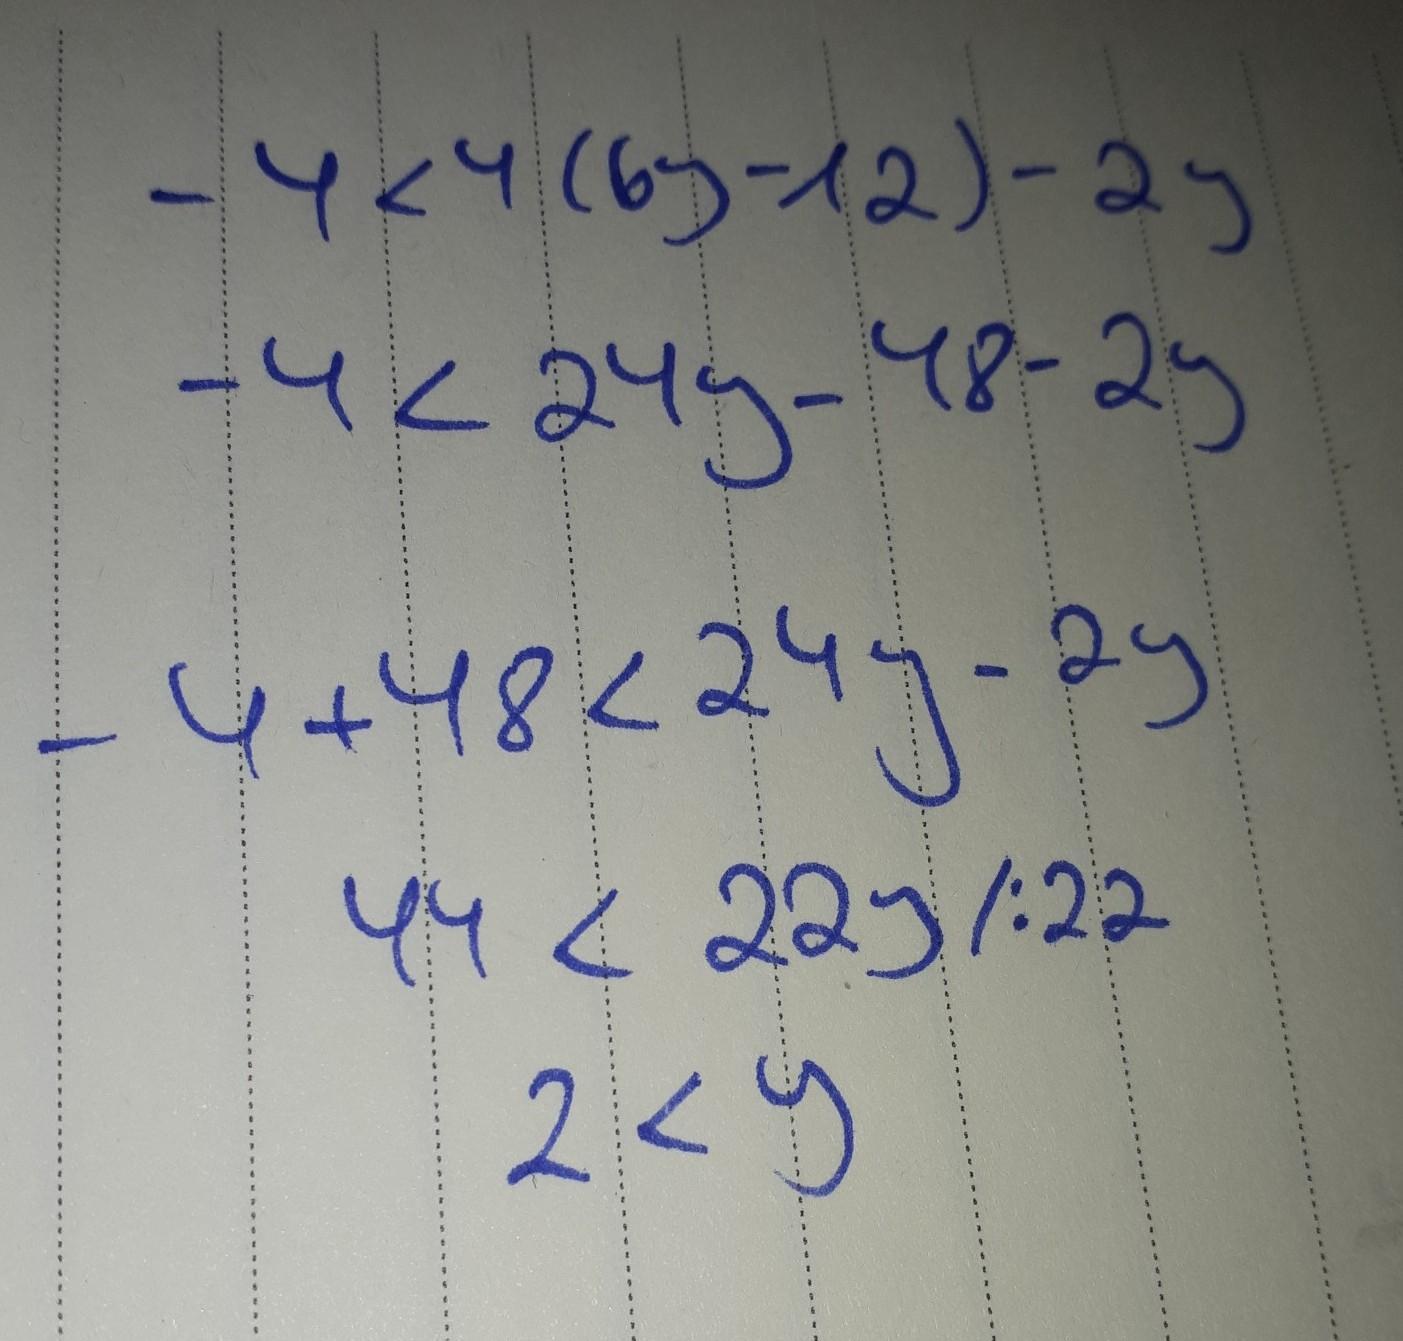 -4<4(6y-12)-2y
-4<24y-48-2y
-4+48<24y-2y
44<22y/:22
2<y